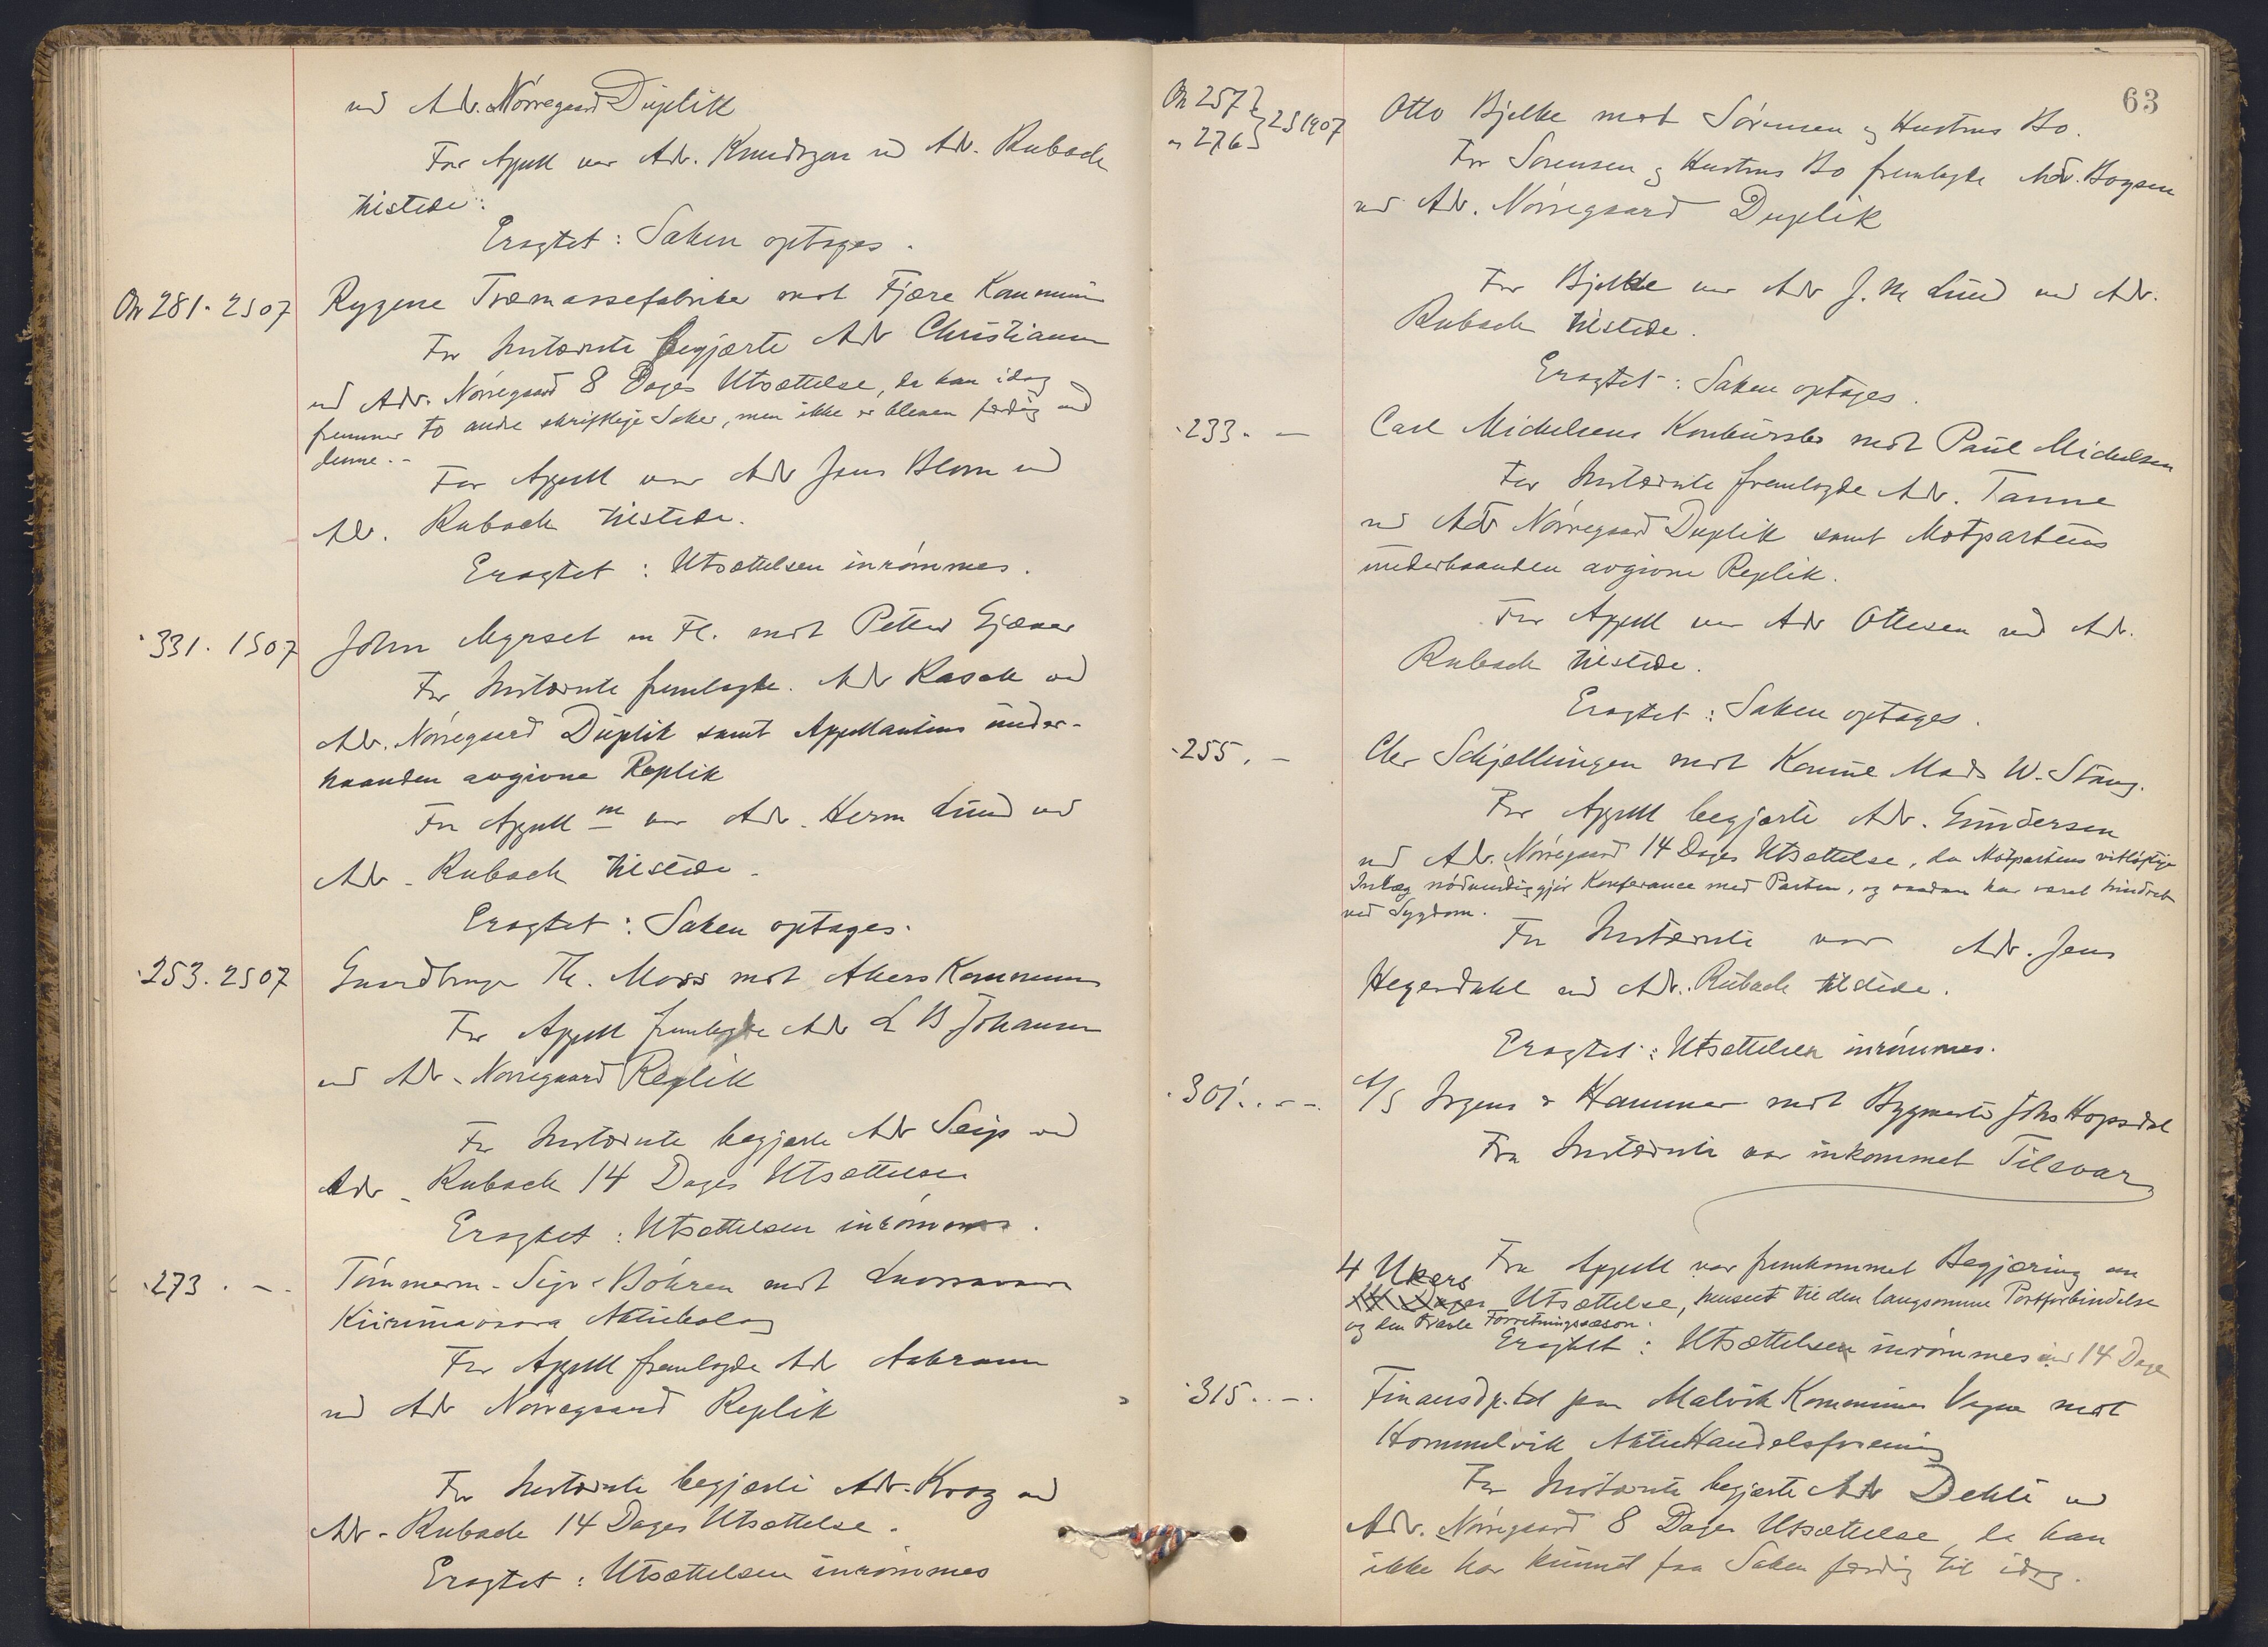 ved Adv. Nörregaard Duplik
For Appell var Adv. Knudtzon ved Adv. Rubach
tilstede.
Eragtet: Saken optages.
On 281. 2S07 Rygene Træmassefabriker mot Fjære Kommune
For Instævnte begjærte Adv Christiansen
ved Adv. Nörregaard 8 Dages Utsættelse, da han idag
fremmer to andre skriftlige Saker, men ikke er bleven færdig med
denne.-
For Appell var Adv Jens Blom ved
Adv. Rubach tilstede.
Eragtet: Utsættelsen inrömmes.
" 331. 1S07 John Myrset m Fl. mot Petter Gjævar
For Instævnte fremlagde Adv Rasch ved
Adv. Nörregaard Duplik samt Appellantens under-
haanden avgivne Replik
For Appell m var Adv. Herm Lund ved
Adv. Rubach tilstede.
Eragtet: Saken optages.
" 253. 2S07 Gaardbruger Th. Moss mot Akers Kommune
For Appell fremlagde Adv L B Johansen
ved Adv. Nörregaard Replik
For Instævnte begjærte Adv Seip ved
Adv. Rubach 14 Dages Utsættelse
Eragtet: Utsættelsen inrömmes.
" 273. - Tömmerm. Sigv. Böhren mot Luossavaara
Kiirunavaara Aktiebolag
For Appell fremlagde Adv Aabraam
ved Adv Nörregaard Replik
For Instævnte begjærte Adv. Krag ved
Adv. Rubach 14 Dages Utsættelse.
Eragtet: Utsættelsen inrömmes
63
On 257 } Otto Bjelke mot Sörensen og Hustrus Bo.
" 276 } 2S1907 For Sörensen og Hustrus Bo fremlagde Adv. Boysen
ved Adv. Nörregaard Duplik
For Bjelke var Adv J. M Lund ved Adv.
Rubach tilstede.
Eragtet: Saken optages.
" 233. - Carl Michelsens Konkursbo mot Paul Michelsen
For Instævnte fremlagde Adv. Tanne
ved Adv Nörregaard Duplik samt Motpartens
underhaanden avgivne Replik.
For Appell var Adv Ottesen ved Adv.
Rubach tilstede.
Eragtet: Saken optages.
" 255. - Chr Schjellungen mot Mads W. Stang.
For Appell begjærte Adv. Gundersen
ved Adv. Nörregaard 14 Dages Utsættelse, da Motpartens vitløftige
Inlæg nödvendiggjör Konferance med Parten, og saadan har været hindret
ved Sygdom.
For Instævnte var Adv. Jens
Heyerdahl ved Adv. Rubach tilstede.
Eragtet: Utsættelsen inrömmes.
" 301. - - A/S Irgens & Hammer mot Bygmester Johs Hopsdal
Fra Instævnte var inkommet Tilsvar
Fra Appell var fremkommet Begjæring om
4 Ukers
14 Dages Utsættelse, henseet til den langsomme Postforbindelse
og den travle Forretningssæson.
Eragtet: Utsættelsen inrömmes med 14 Dage
" 315. - Finansdp.tet paa Malvik Kommunes Vegne mot
Hommelvik Aktie Handelsforening
For Instævnte begjærte Adv Dehli ved
Adv. Nörregaard 8 Dages Utsættelse, da han
ikke har kunnet faa Saken færdig til idag.